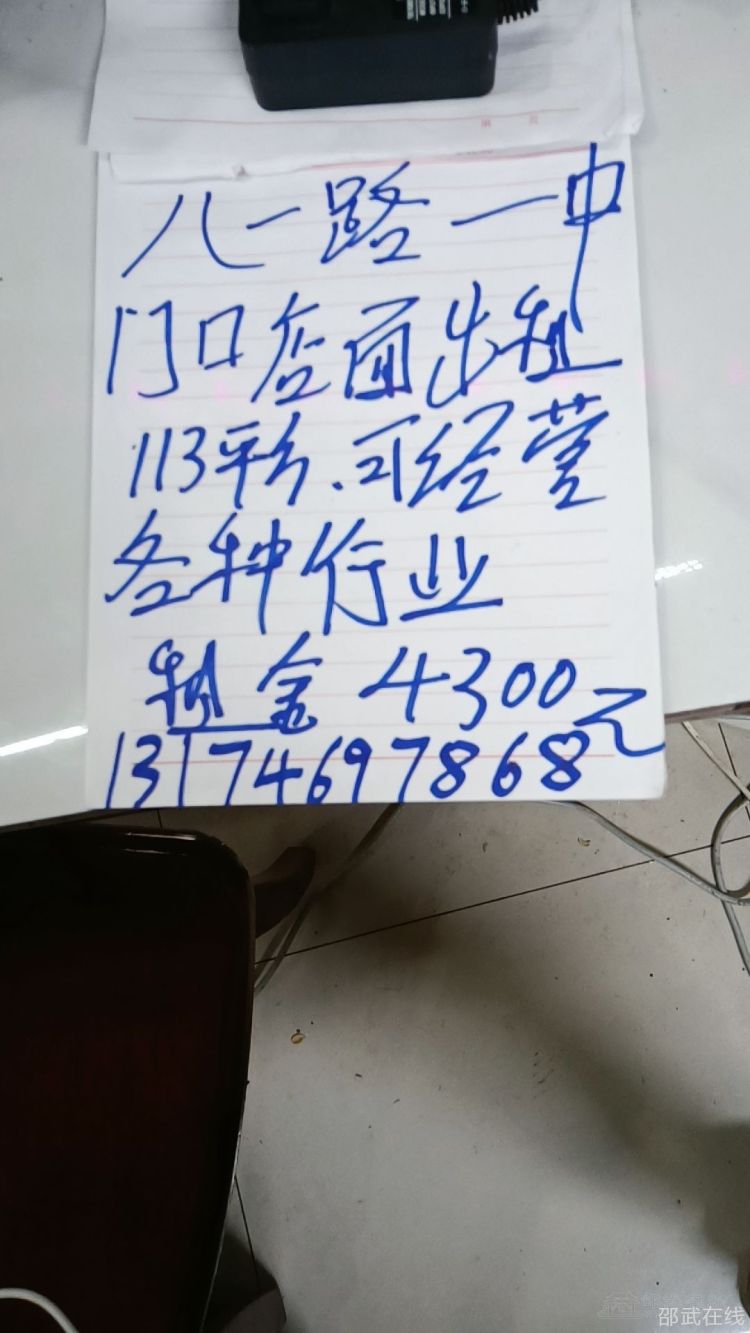 八一路一中
门口店面出租
113平方、可经营
各种行业
租金4300元
13174697868
邵武在线